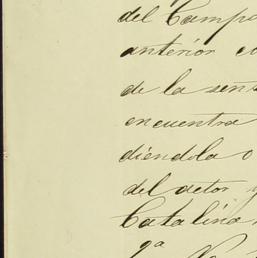 del Camp
anterior co
de la señ
encuentra
diéndola o
del actor y
Catalina
9ª No